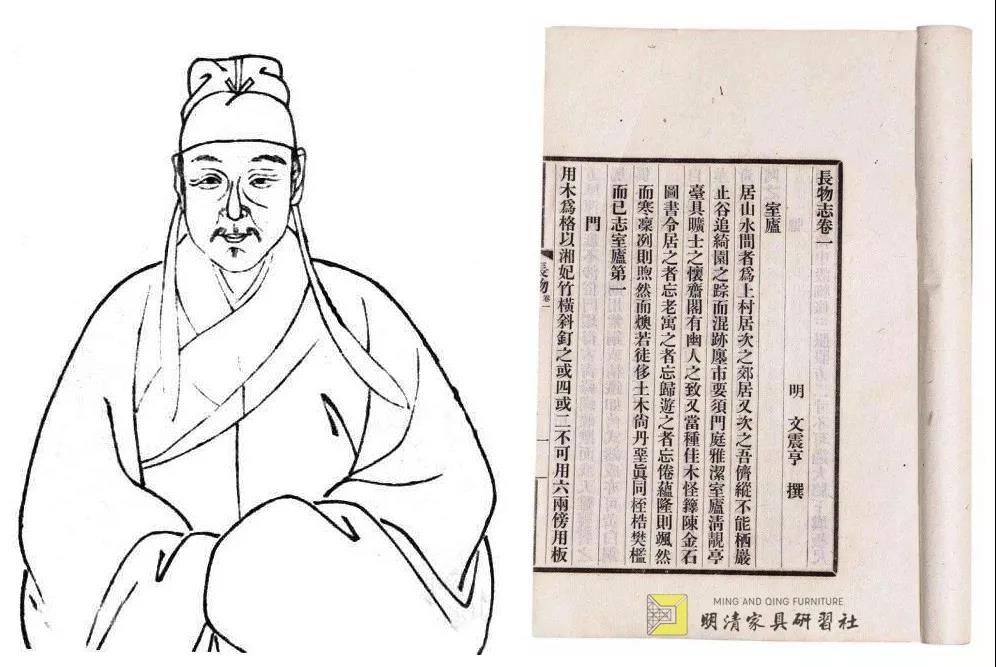 長物志卷一
明 文震亨 撰
室廬
居山水間者爲上村居次之郊居又次之吾儕縱不能栖巖
止谷追綺園之踪而混跡廛市要須門庭雅潔室廬清靚亭
臺具曠士之懷齋閣有幽人之致又當種佳木怪籜陳金石
圖書令居之者忘老寓之者忘歸遊之者忘倦蘊隆則颯然
而寒凜冽則煦然而燠若徒侈土木尚丹堊眞同桎梏樊檻
而已志室廬第一
門
用木爲格以湘妃竹橫斜釘之或四或二不可用六兩傍用板
長物 卷一
MING AND QING FURNITURE
明清家具研習社